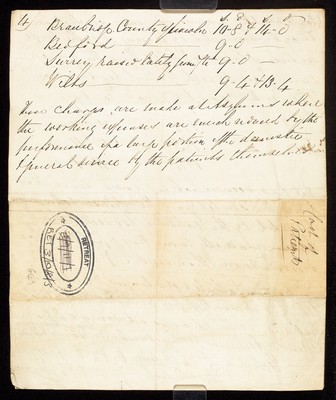 4
Bracebridge County Lincoln 10-8 & 14-0
Bedford — 9-0 —
Surrey raised lately from 9-0 —
Wilts — 9-4 & 13-4
These charges are made at Asylums where
the working expenses are much reduced by the
performance of a large portion of the domestic
& general service by the patients themselves
Cost of
Patients
RETREAT